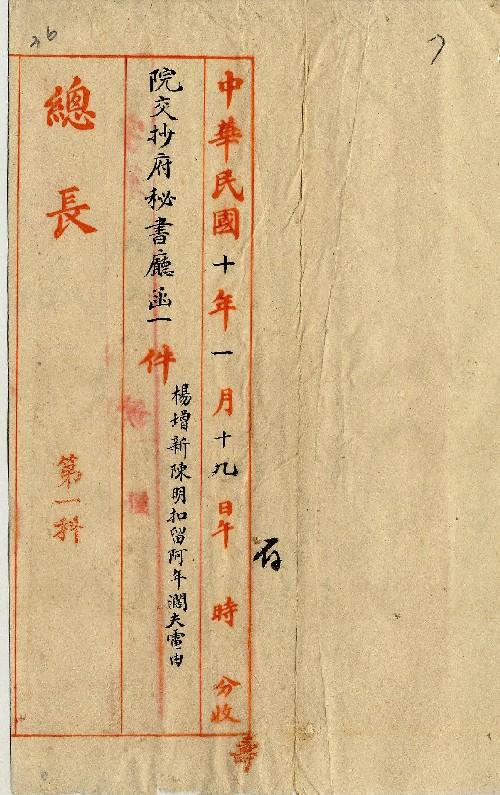 中華民國十年一月十九日午 時 分收
存
院交抄府秘書廳函一件
楊增新陳明扣留阿年濶夫電由
總長
第一科
壽